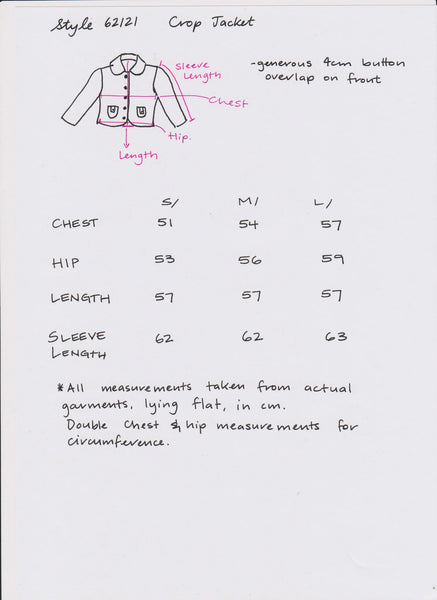 Style 62121 Crop Jacket
Sleeve
Length
-generous 4cm button
overlap on front
Chest
Hip.
Length
S/ M/ L/
CHEST 51 54 57
HIP 53 56 59
LENGTH 57 57 57
SLEEVE 62 62 63
LENGTH
*All measurements taken from actual
garments, lying flat, in cm.
Double Chest & hip measurements for
circumference.